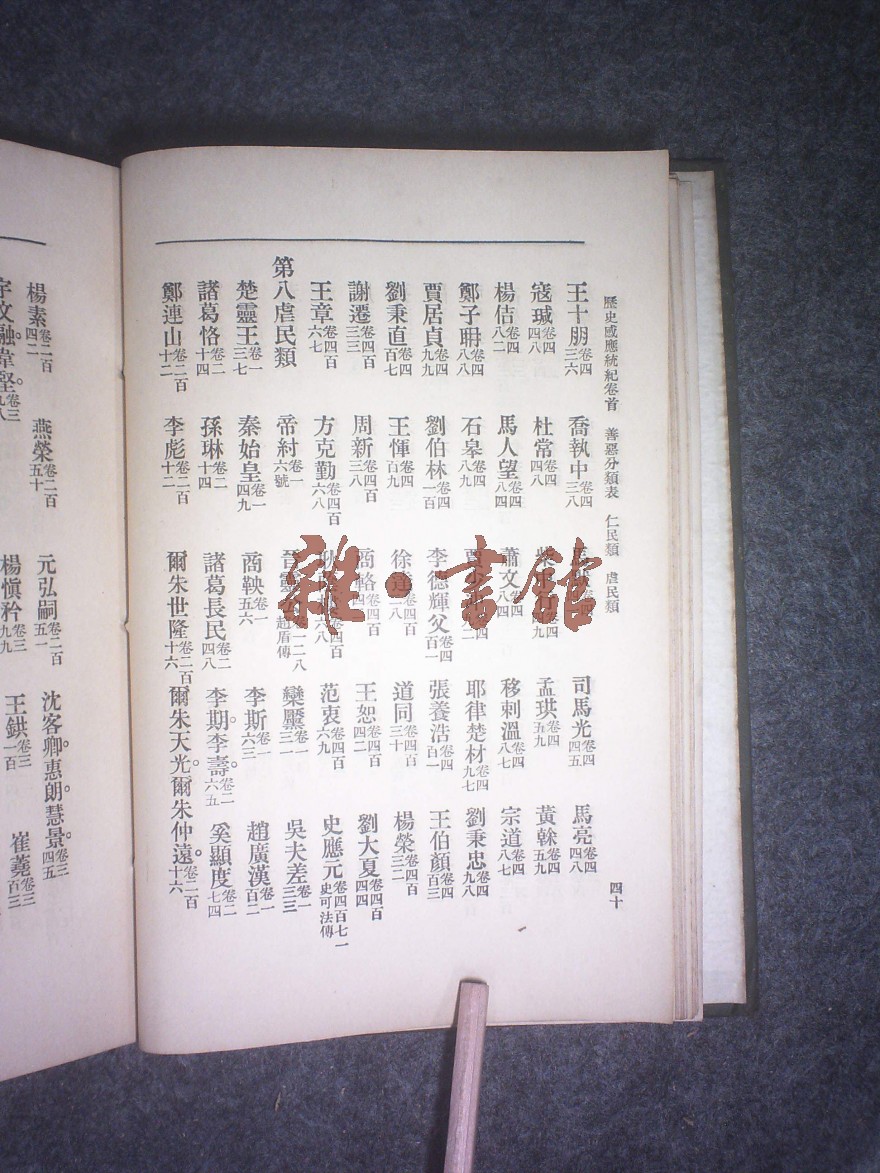 歷史感應統紀卷首　善惡分類表　仁民類　虐民類　四十
王十朋卷四三六　喬執中卷四三八　司馬光卷四四五　馬亮卷四四八
寇瑊卷四四八　杜常卷四四八　孟珙卷四五九　黃榦卷四五九
楊佶卷四八二　馬人望卷四八四　蕭文卷四八四　移剌溫卷四八七　宗道卷四八七
鄭子聃卷四八八　石皋卷四八九　耶律楚材卷四九七　劉秉忠卷四九八
賈居貞卷四九九　劉伯林卷四一百　李德輝父卷四百一　張養浩卷四百一　王伯顏卷四百三
劉秉直卷四百七　王惲卷四百九　徐達卷四百二八　道同卷四百三十　楊榮卷四百三二
謝遷卷四百三三　周新卷四百三八　商輅卷四百　王恕卷四百四二　劉大夏卷四百四四
王章卷四百六七　方克勤卷四百六八　卷四百六八　范衷卷四百六九　史應元卷四百七一史可法傳
第八虐民類　帝紂卷一六號　晉靈一二八趙盾傳　欒黶卷一三一　吳夫差卷一三三
楚靈王卷一三七　秦始皇卷一四九　商鞅卷一五六　李斯卷一六三　趙廣漢卷一百二
諸葛恪卷二十四　孫琳卷二十四　諸葛長民卷二四八　李期。李壽。卷二六五　奚顯度卷二七四
鄭連山卷二百十二　李彪卷二百十二　爾朱世隆卷二百十六　爾朱天光。爾朱仲遠。卷二百十六
楊素卷二百四二　燕榮卷二百五十　元弘嗣卷二百五一　沈客卿。惠朗。慧景。卷三四五
宇文融。韋堅。卷三九八　楊愼矜卷三九九　王鉷卷三一百　崔蕘卷三百三
雜·書館